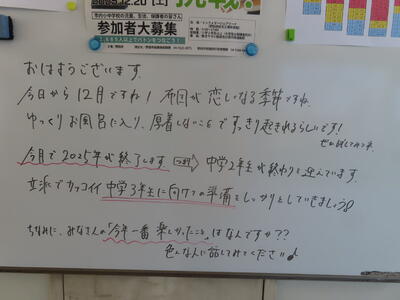 12.20(土)
市内小中学校の児童、生徒、保護者の皆さん
参加者大募集
おはようございます。
今日から12月ですね! 布団が恋しくなる季節ですね。
ゆっくりお風呂に入り、厚着しないことですっきり起きれるらしいです!
ぜひ試してみて
今月で2025年が終了します つまり 中学2年生が終わりに近づいています。
立派でカッコイイ中学3年生に向けての準備をしっかりとしていきましょう
ちなみに、みなさんの「今年一番楽しかったこと」はなんですか??
色んな人に話してみてください♪